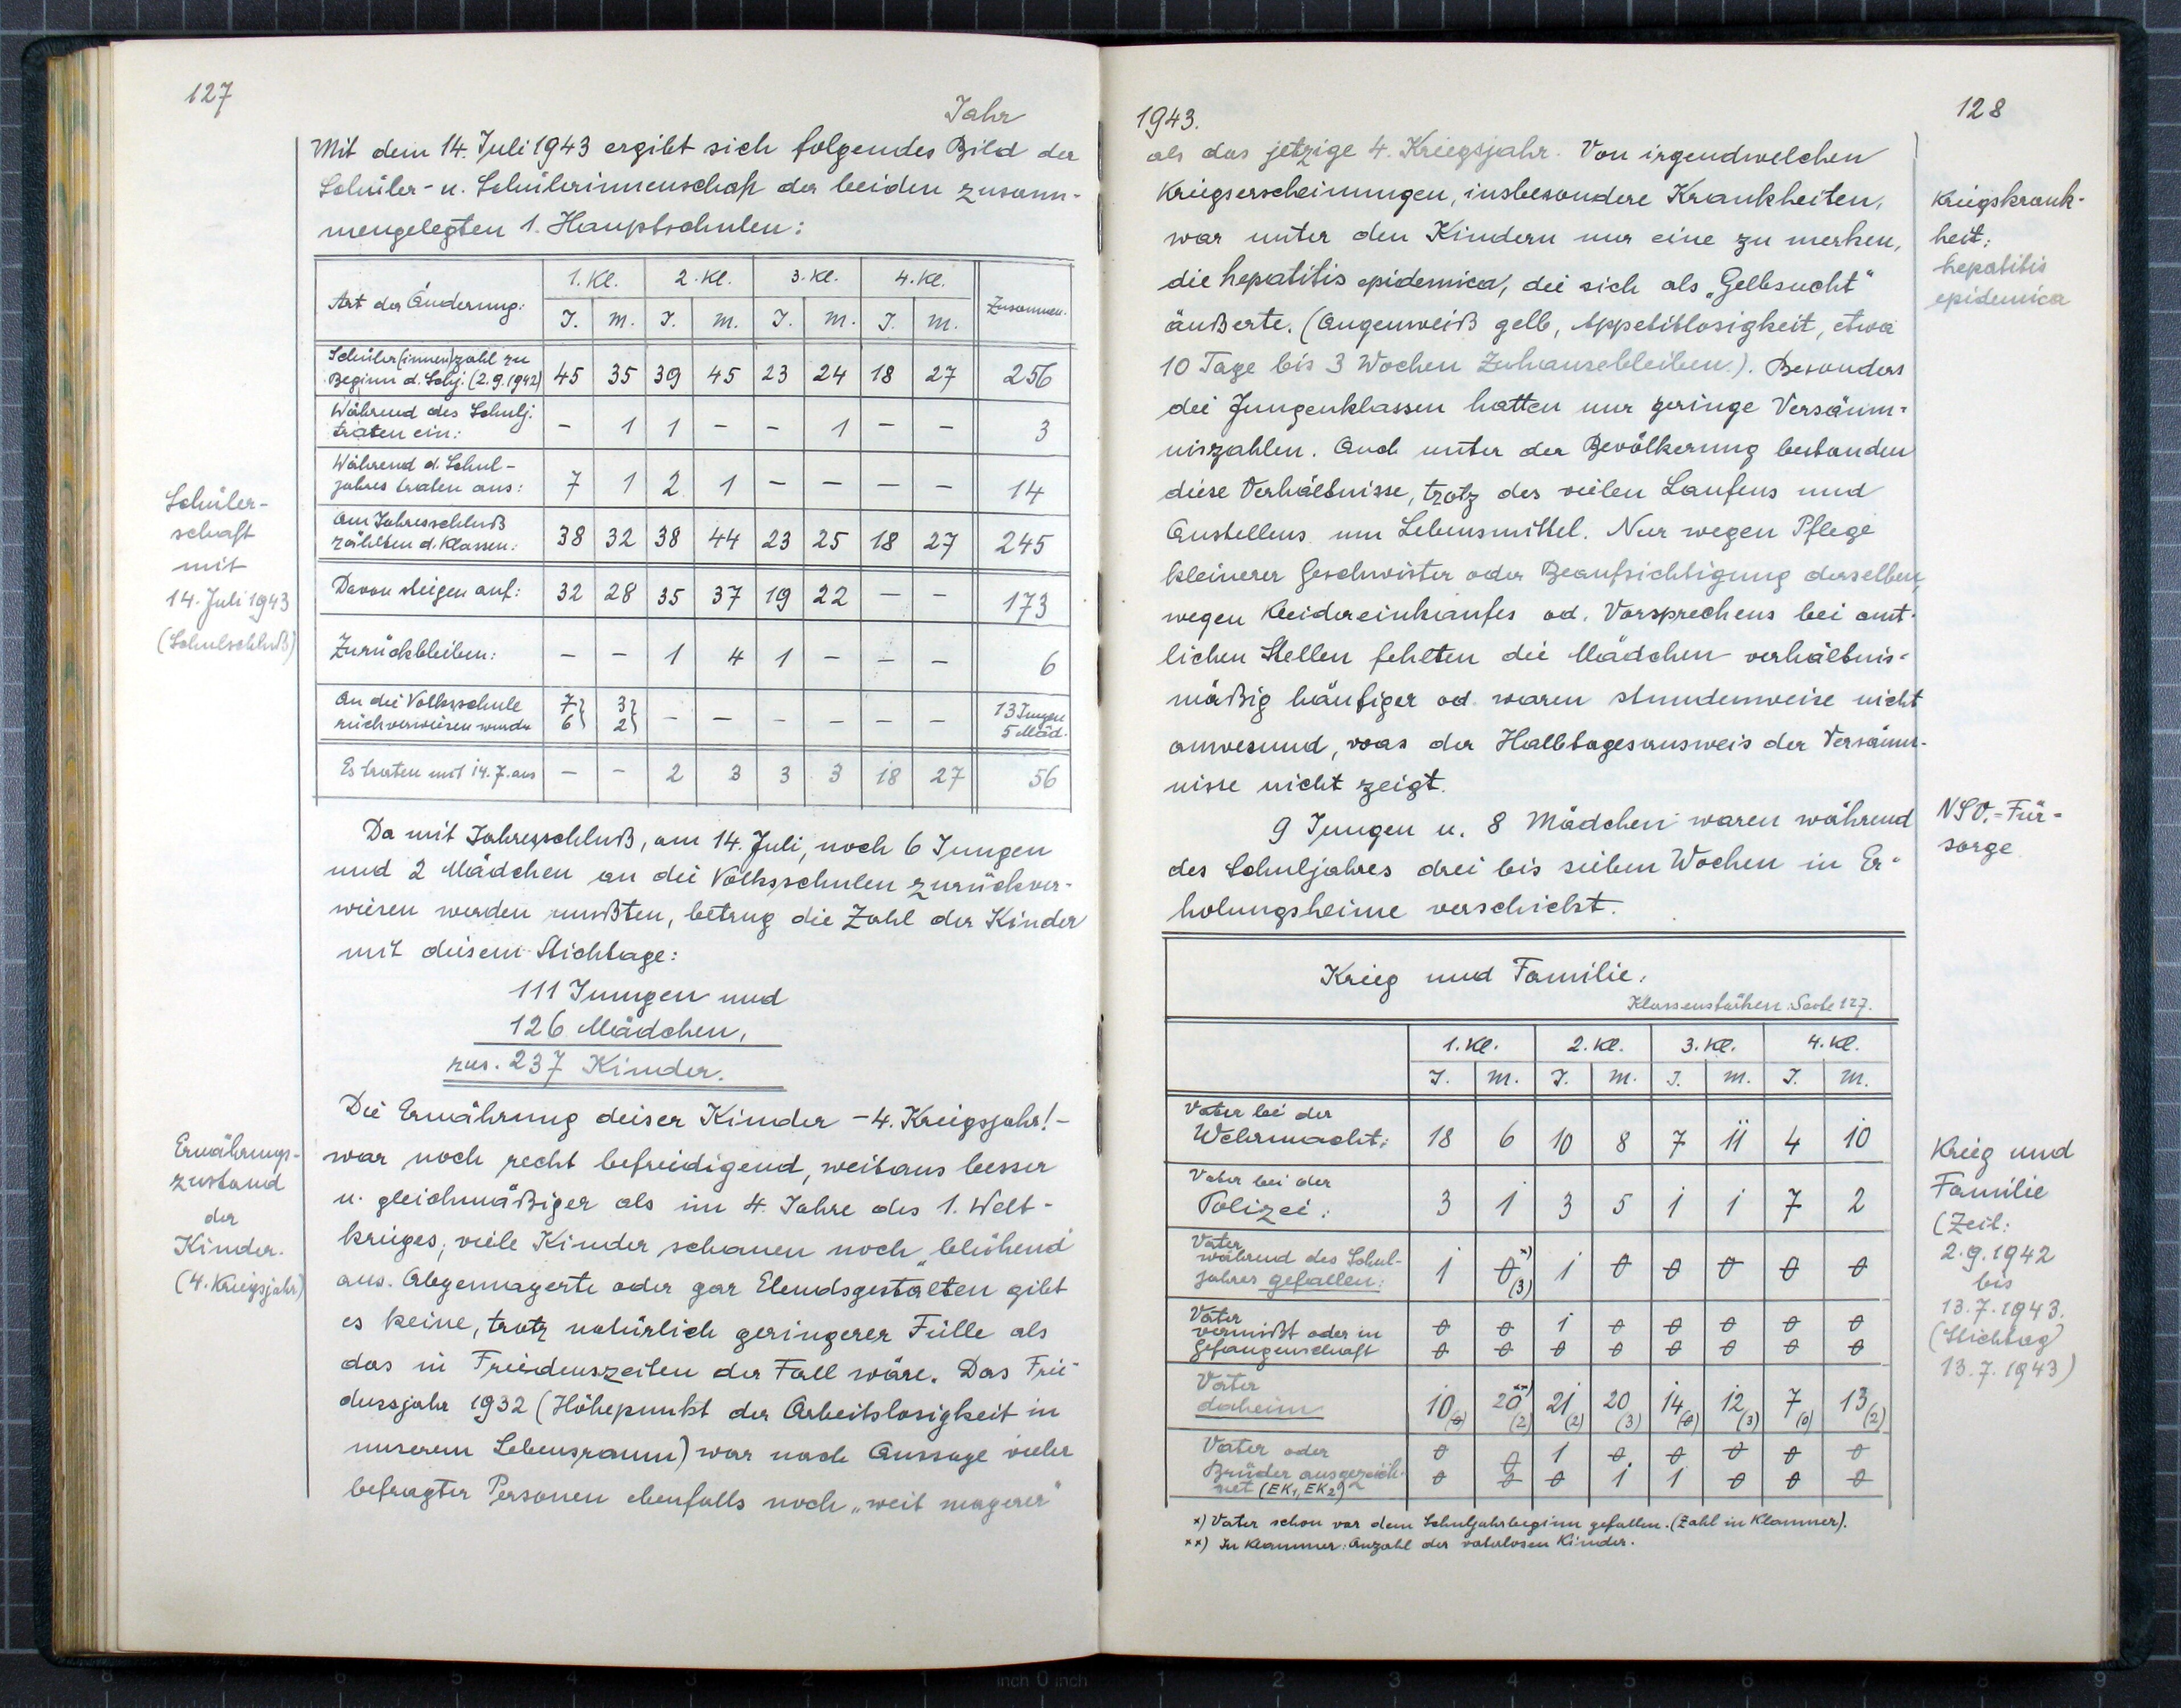 127
Jahr
Mit dem 14. Juli 1943 ergibt sich folgendes Bild der
Schüler- u. Schülerinnenschaft der beiden zusam-
mengelegten 1. Hauptschulen:
Art der Änderung: 1. Kl. 2. Kl. 3. Kl. 4. Kl. Zusammen.
J. M. J. M. J. M. J. M.
Schüler(innen)zahl zu
Beginn d. Schj. (2.9.1942) 45 35 39 45 23 24 18 27 256
Während des Schulj.
traten ein: – 1 1 – – 1 – – 3
Während d. Schul-
jahres traten aus: 7 1 2 1 – – – – 14
Am Jahresschluß
zählten d. Klassen: 38 32 38 44 23 25 18 27 245
Davon steigen auf: 32 28 35 37 19 22 – – 173
Zurückbleiben: – – 1 4 1 – – – 6
An die Volksschule 7} 3} 13 Jungen
rückverwiesen wurden 6} 2} – – – – – – 5 Mäd.
Es traten mit 14.7. aus – – 2 3 3 3 18 27 56
Schüler-
schaft
mit
14. Juli 1943
(Schulschluß)
Da mit Jahresschluß, am 14. Juli, noch 6 Jungen
und 2 Mädchen an die Volksschulen zurückver-
wiesen werden mußten, betrug die Zahl der Kinder
mit diesem Stichtage:
111 Jungen und
126 Mädchen,
zus. 237 Kinder.
Die Ernährung dieser Kinder – 4. Kriegsjahr! –
war noch recht befriedigend, weitaus besser
u. gleichmäßiger als im 4. Jahre des 1. Welt-
krieges; viele Kinder schauen noch „blühend"
aus. Abgemagerte oder gar Elendsgestalten gibt
es keine, trotz natürlich geringerer Fülle als
das in Friedenszeiten der Fall wäre. Das Frie-
densjahr 1932 (Höhepunkt der Arbeitslosigkeit in
unserem Lebensraum) war nach Aussage vieler
befragter Personen ebenfalls noch „weit magerer"
Ernährungs-
zustand
der
Kinder.
(4. Kriegsjahr)
128
1943.
als das jetzige 4. Kriegsjahr. Von irgendwelchen
Kriegserscheinungen, insbesondere Krankheiten,
war unter den Kindern nur eine zu merken,
die hepatitis epidemica, die sich als „Gelbsucht"
äußerte. (Augenweiß gelb, Appetitlosigkeit, etwa
10 Tage bis 3 Wochen Zuhausebleiben.). Besonders
die Jungenklassen hatten nur geringe Versäum-
niszahlen. Auch unter der Bevölkerung bestanden
diese Verhältnisse, trotz des vielen Laufens und
Anstellens um Lebensmittel. Nur wegen Pflege
kleinerer Geschwister oder Beaufsichtigung derselben,
wegen Kleidereinkaufes od. Vorsprechens bei amt-
lichen Stellen fehlten die Mädchen verhältnis-
mäßig häufiger od. waren stundenweise nicht
anwesend, was der Halbtagesausweis der Versäum-
nisse nicht zeigt.
9 Jungen u. 8 Mädchen waren während
des Schuljahres drei bis sieben Wochen in Er-
holungsheime verschickt.
Kriegskrank-
heit:
hepatitis
epidemica
NSV.-Für-
sorge
Krieg und Familie:
Klassenstärken: Seite 127.
1. Kl. 2. Kl. 3. Kl. 4. Kl.
J. M. J. M. J. M. J. M.
Vater bei der
Wehrmacht: 18 6 10 8 7 11 4 10
Vater bei der
Polizei: 3 1 3 5 1 1 7 2
Vater
während des Schul-
jahres gefallen: 1 0 x) (3) 1 0 0 0 0 0
Vater
vermißt oder in 0 0 1 0 0 0 0 0
Gefangenschaft 0 0 0 0 0 0 0 0
Vater
daheim 10 (0) 20 xx) (2) 21 (2) 20 (3) 14 (0) 12 (3) 7 (0) 13 (2)
Vater oder 0 0 1 0 0 0 0 0
Brüder ausgezeich- 0 0 0 1 1 0 0 0
net (EK1, EK2)
x) Vater schon vor dem Schuljahrbeginn gefallen. (Zahl in Klammer).
xx) In Klammer: Anzahl der vaterlosen Kinder.
Krieg und
Familie
(Zeit:
2.9.1942
bis
13.7.1943.
(Stichtag
13.7.1943)
inch 0 inch